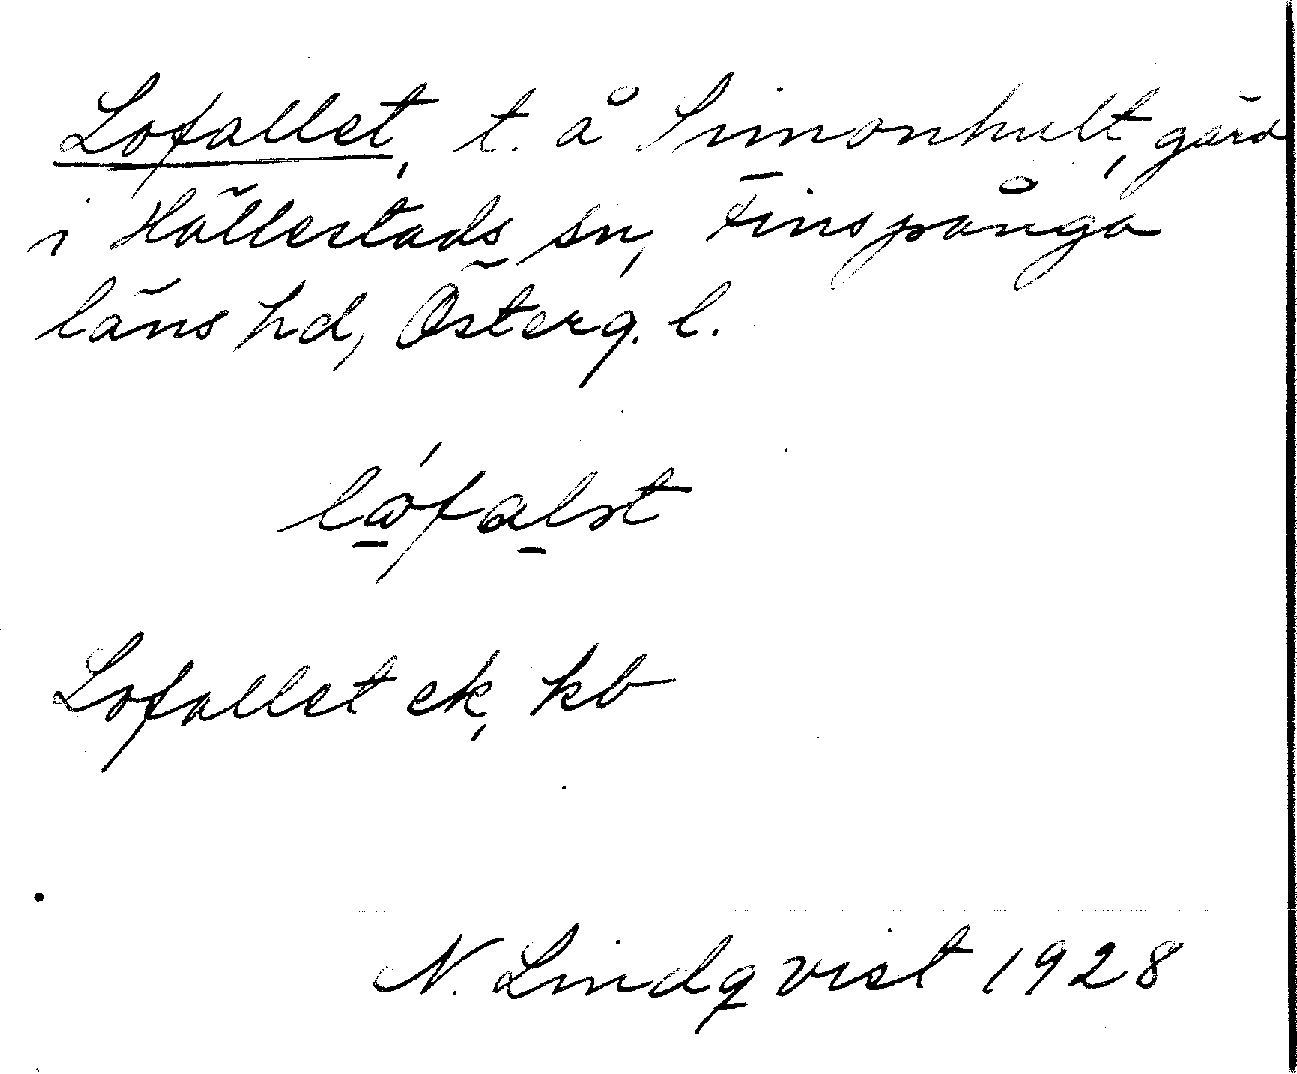 Lofallet, t. å Simonhult, gård
i Hällestads sn, Finspånga
läns hd, Österg. l.
Lofallet ek, kb
N. Lindqvist 1928